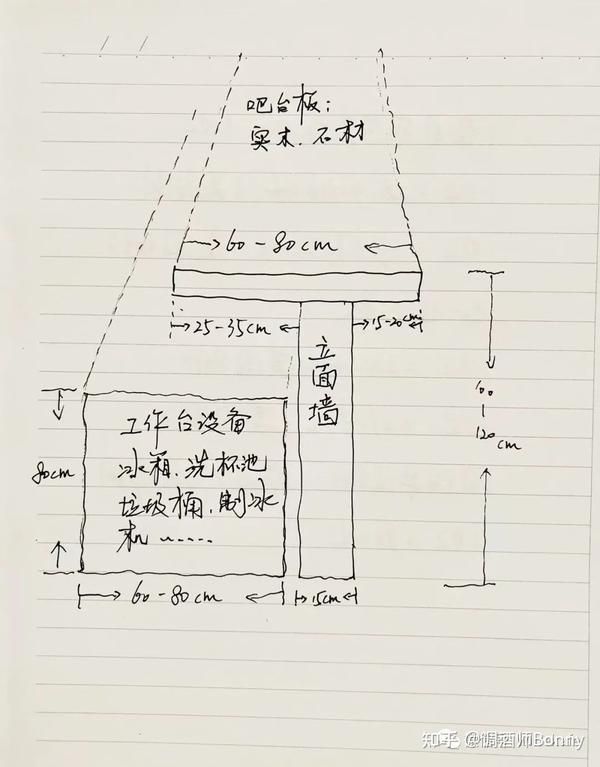 吧台板:
实木、石材
60-80cm
25-35cm
15-20cm
立面墙
100-120cm
工作台设备
冰箱、洗杯池
垃圾桶、制冰
机......
80cm
60-80cm
15cm
知乎 @调酒师Bonny